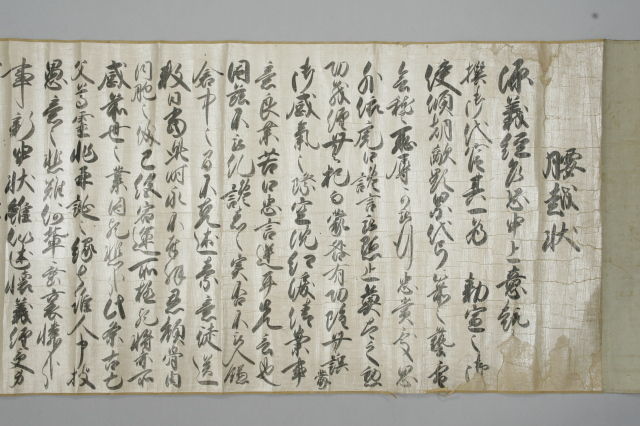 腰越状
源義経乍恐申上意趣
撰御代官其一為 勅宣之御
使傾朝敵顕累代弓箭之藝雪
会稽恥辱可被行忠賞之處思
外依虎口讒言被黙止莫太之勲
功義経無犯蒙咎有功雖無誤蒙
御感氣之際空沈紅涙倩案事
意良薬苦口忠言逆耳先言也
因茲不被糺讒者之実否不被入鎌
倉中之間不能述素意徒送
数日當此時永不奉拝恩顔骨肉
同胞之儀已終宿運所極 将亦不
感前世之業因歟悲哉此条古亡
父尊霊非再誕 誰人申披
愚意之悲歎何輩垂哀憐
事新申状雖似述懐義経